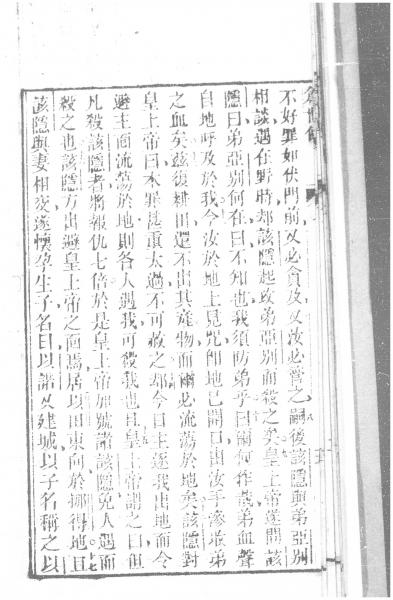 不好罪如伏門前又必貪及又汝必管之嗣後該隱與弟亞別
相談遇在野時却該隱起攻弟亞別而殺之矣皇上帝遂問該
隱曰弟亞別何在曰不知也我須防弟乎曰爾何作哉弟血聲
自地呼及於我今汝於地上見咒即地已開口由汝手滲取弟
之血矣茲後耕田還不出其產物而爾必流蕩於地矣該隱對
皇上帝曰本罪甚重太過不可赦之却今日主逐我出地而令
避主面流蕩於地則各人遇我可殺我也且皇上帝謂之曰但
凡殺該隱者將報仇七倍於是皇上帝加號諸該隱免人遇而
殺之也該隱方出避皇上帝之面焉居以田東向於挪得地且
該隱與妻相交遂懷孕生子名曰以諾又建城以子名稱之以